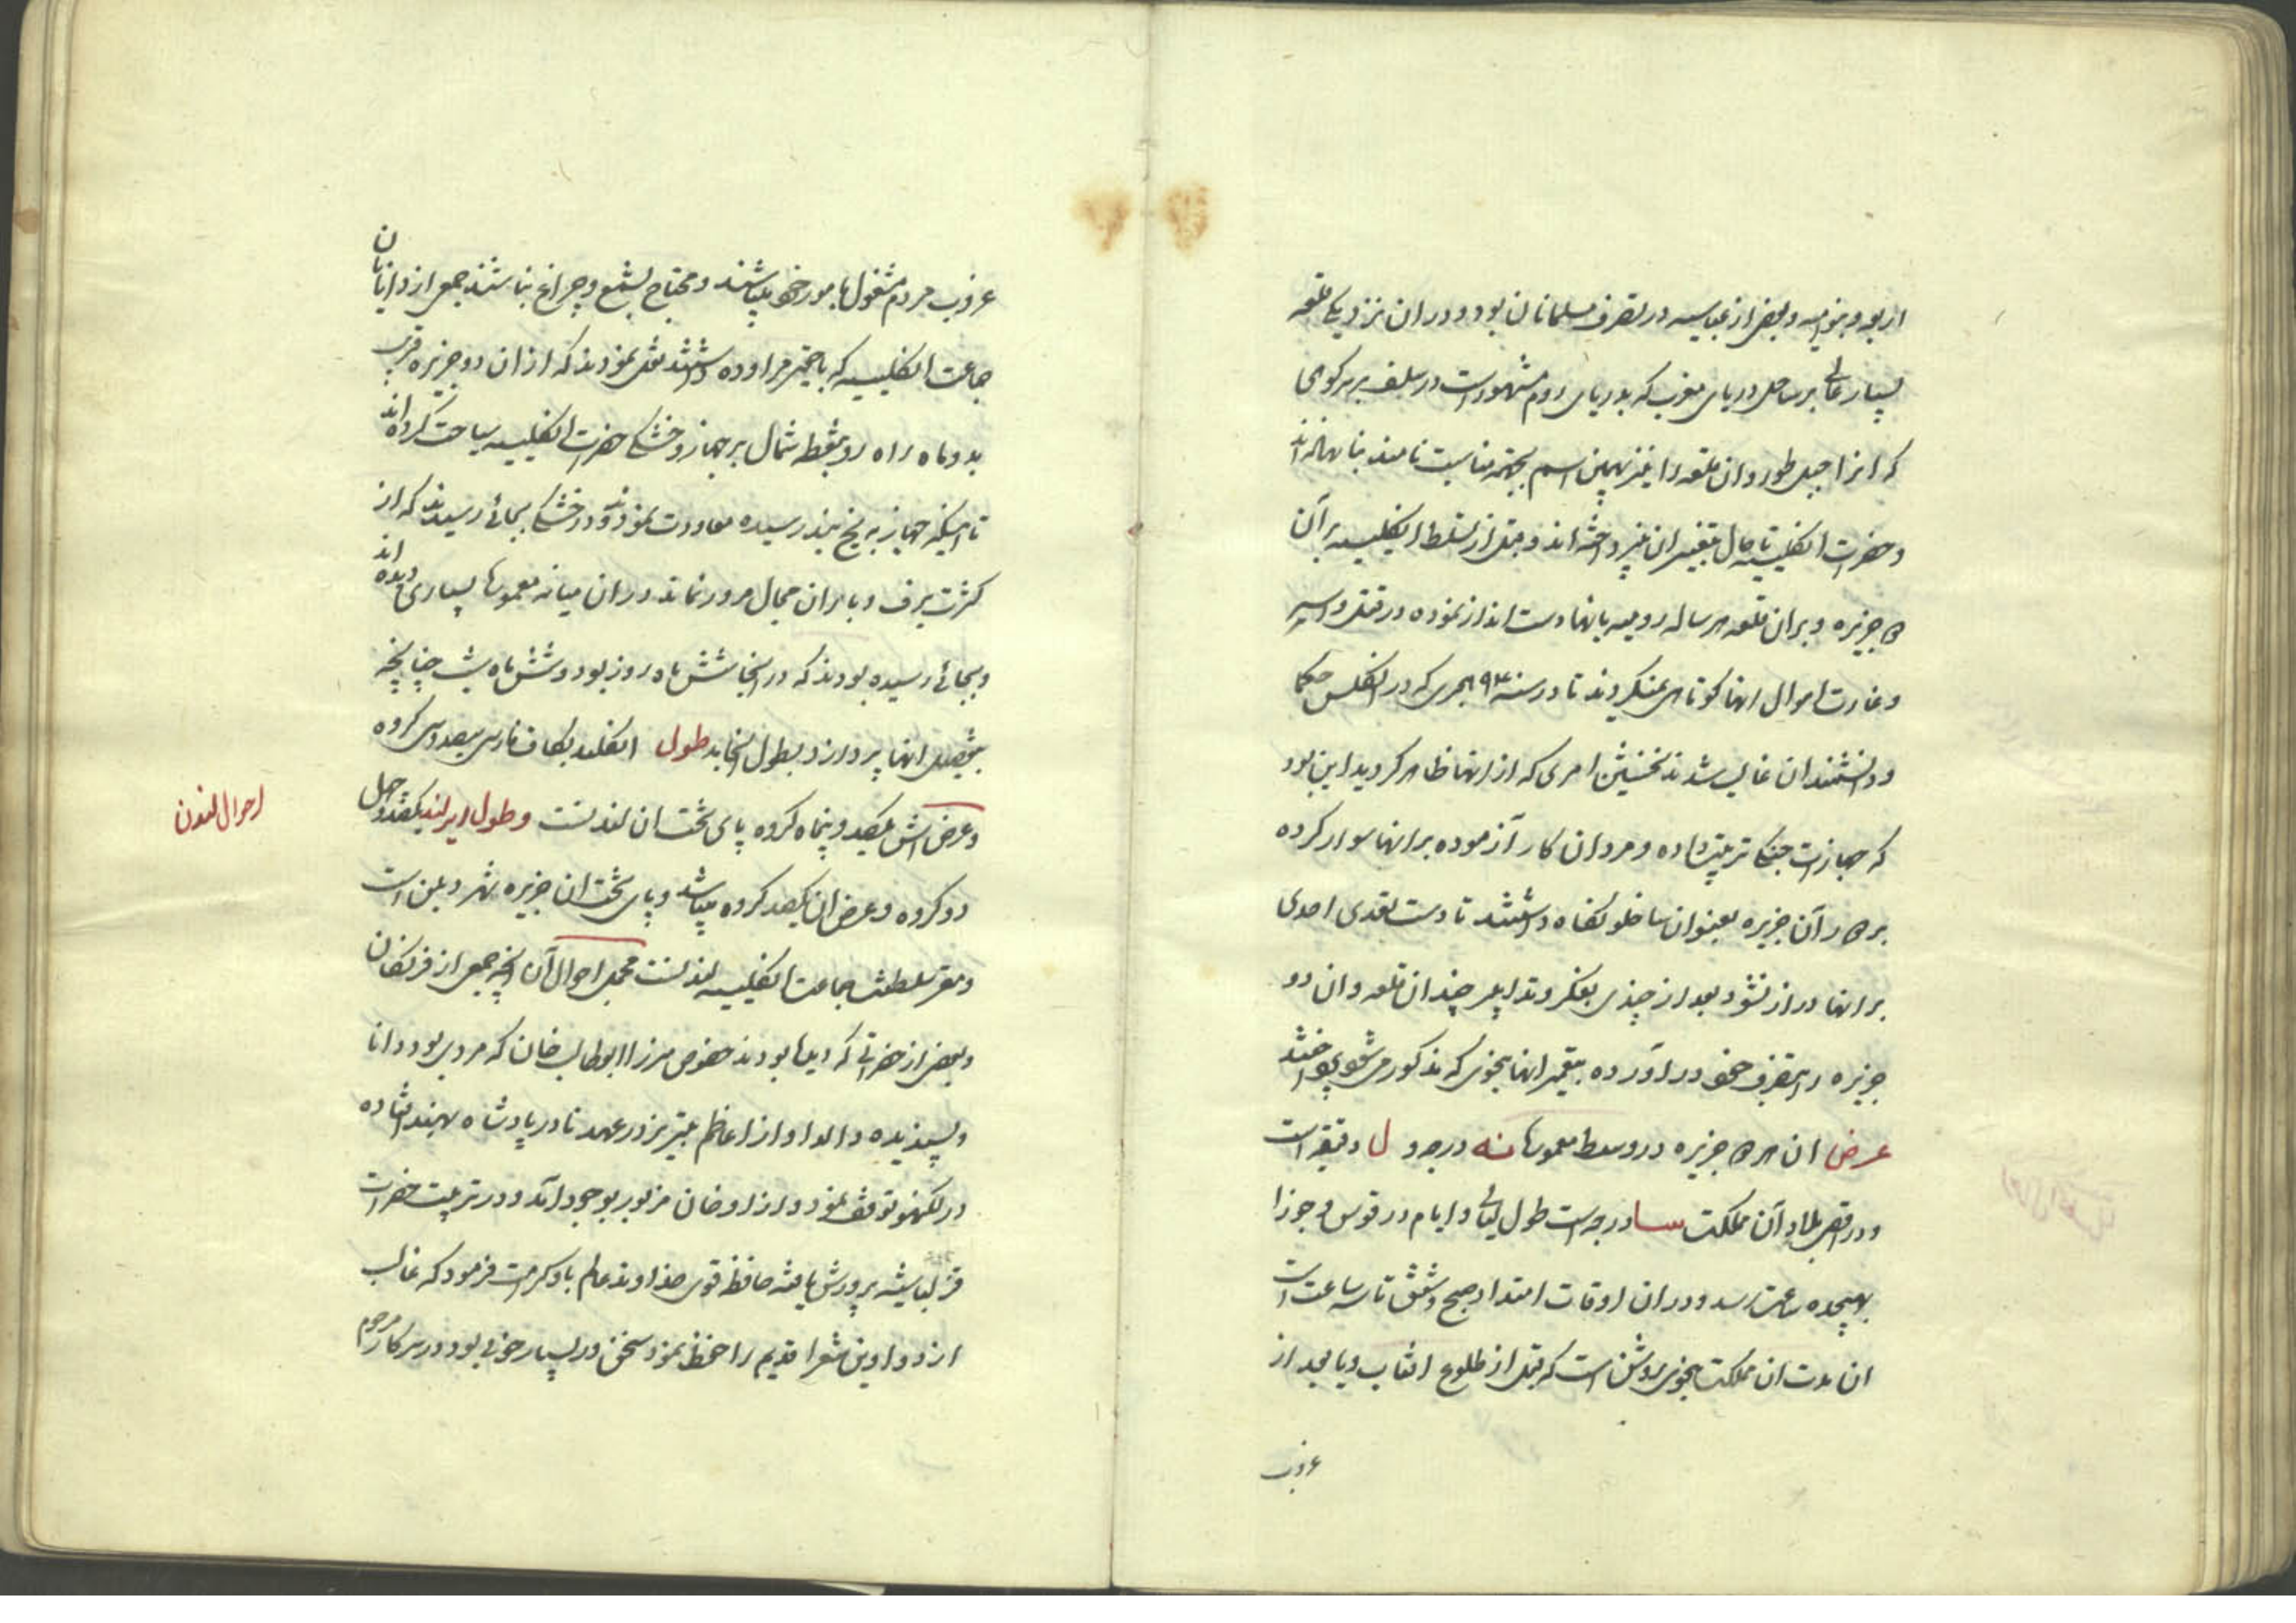 از بعد و بنوامیه و بعضی از عباسیه در تصرف مسلمانان بود و دران نزدیکی قلعه
بسیار عالی بر ساحل دریای مغرب که بدریای روم مشهور است در سلف بر سر کوهی
که انرا جبل طور و ان قلعه را نیز بهمین اسم بجهته مناسبت نامند بنا نهاده اند
و حضرت انکلیسیه تا حال بتغییر ان نپرداخته اند و قبل از تسلط انکلیسیه بر آن
جزیره و بران قلعه هر ساله رومیه بانها دست انداز نموده در قتل و اسیر
و غارت اموال انها کوتاهی نمیکردند تا در سنه هجری که در انکلس حکما
و دانشمندان غالب شدند نخستین امری که از انها ظاهر کردید این بود
که جهازات جنکی ترتیب داده و مردان کار آزموده بر انها سوار کرده
بر آن جزیره بعنوان ساخلو نکاه داشتند تا دست تعدی احدی
بر انها دراز نشود بعد از چندی بفکر و تدابیر چند ان قلعه و ان دو
جزیره را بتصرف خود در آورده بتعمیر انها بنحوی که مذکور می شود پرداختند
عرض ان هر جزیره در وسط معموره نه درجه و ل دقیقه است
و در اقصی بلاد آن مملکت سا درجه است طول لیالی و ایام در قوس و جوزا
بهیجده ساعت رسد و دران اوقات امتداد صبح و شفق تا سه ساعت است
ان مدت ان مملکت بنحوی روشن است که قبل از طلوع افتاب و یا بعد از
غروب
غروب مردم مشغول بامور خود میباشند و محتاج بشمع و چراغ نباشند جمعی از دانایان
جماعت انکلیسیه که با حقیر مراوده داشتند نقل نمودند که از ان دو جزیره قریب
بدو ماه راه رو بنقطه شمال بر جهاز و خشکی حضرت انکلیسیه سیاحت کرده اند
تا اینکه جهاز به یخ بند رسیده معاودت نمودند و در خشکی بجائی رسیدند که از
کثرت برف و باران مجال مرور نماند دران میانه معموره بسیاری دیده اند
و بجائی رسیده بودند که در انجا شش ماه روز بود و شش ماه شب چنانچه
بتفصیل انها پردازد بطول انجامد طول انکلند بکاف فارسی سیصد و سی کروه
و عرضش یکصد و پنجاه کروه پای تخت ان لندنست و طول ایرلند یکصد و چهل
دو کروه و عرض ان یکصد کروه میباشد و پای تخت ان جزیره شهر دبلن است
و مقر سلطنت جماعت انکلیسیه لندنست مجمل احوال آن انچه جمعی از فرنکان
و بعضی از حضراتی که دیده بودند خصوص میرزا ابوطالب خان که مردی بود دانا
و پسندیده والد او از اعاظم تبریز در عهد نادر پادشاه بهند افتاده
در لکهنو توقف نمود و از او خان مزبور بوجود آمد و در تربیت حضرات
قزلباشیه پرورش یافته حافظه قوی خداوند عالم باو کرامت فرمود که غالب
از دواوین شعرا قدیم را حفظ نمود سخنور بسیار خوبی بود در سرکار مرحوم
احوال لندن